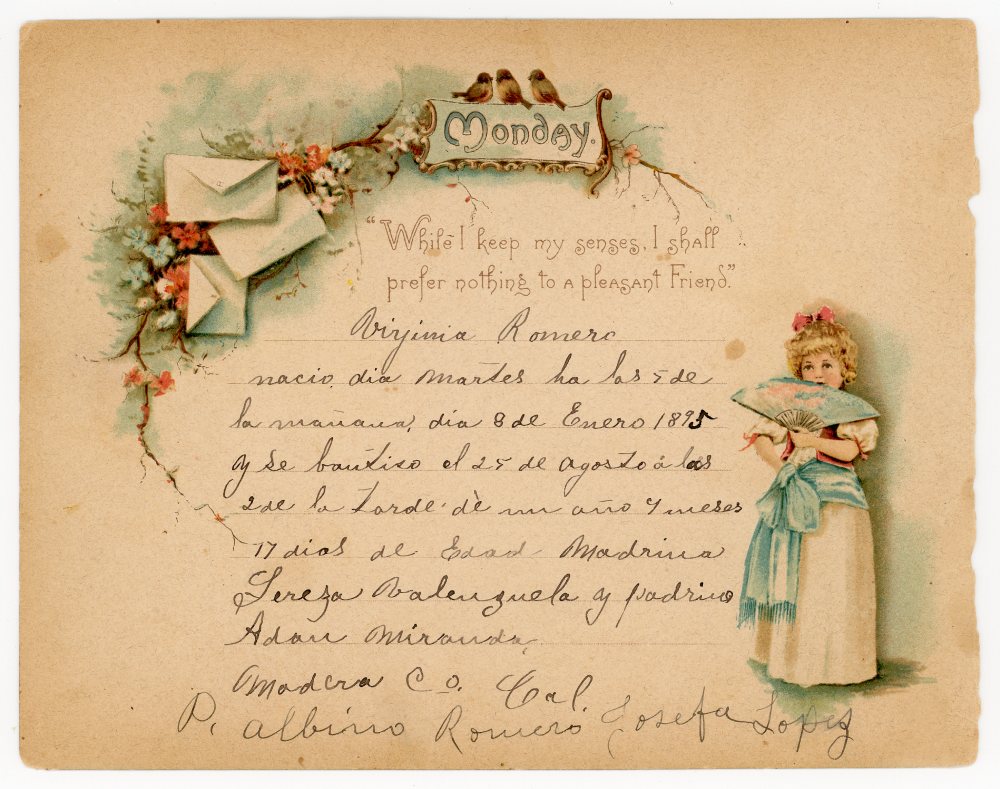 Monday.
"While I keep my senses, I shall
prefer nothing to a pleasant Friend."
Virginia Romero
nacio dia Martes ha las 5 de
la mañana, dia 8 de Enero 1895
y se bautiso el 25 de agosto á las
2 de la tarde de un año 7 meses
17 dias de Edad Madrina
Tereza Valenzuela y padrino
Adan Miranda,
Madera Co. Cal.
P. Albino Romero Josefa Lopez